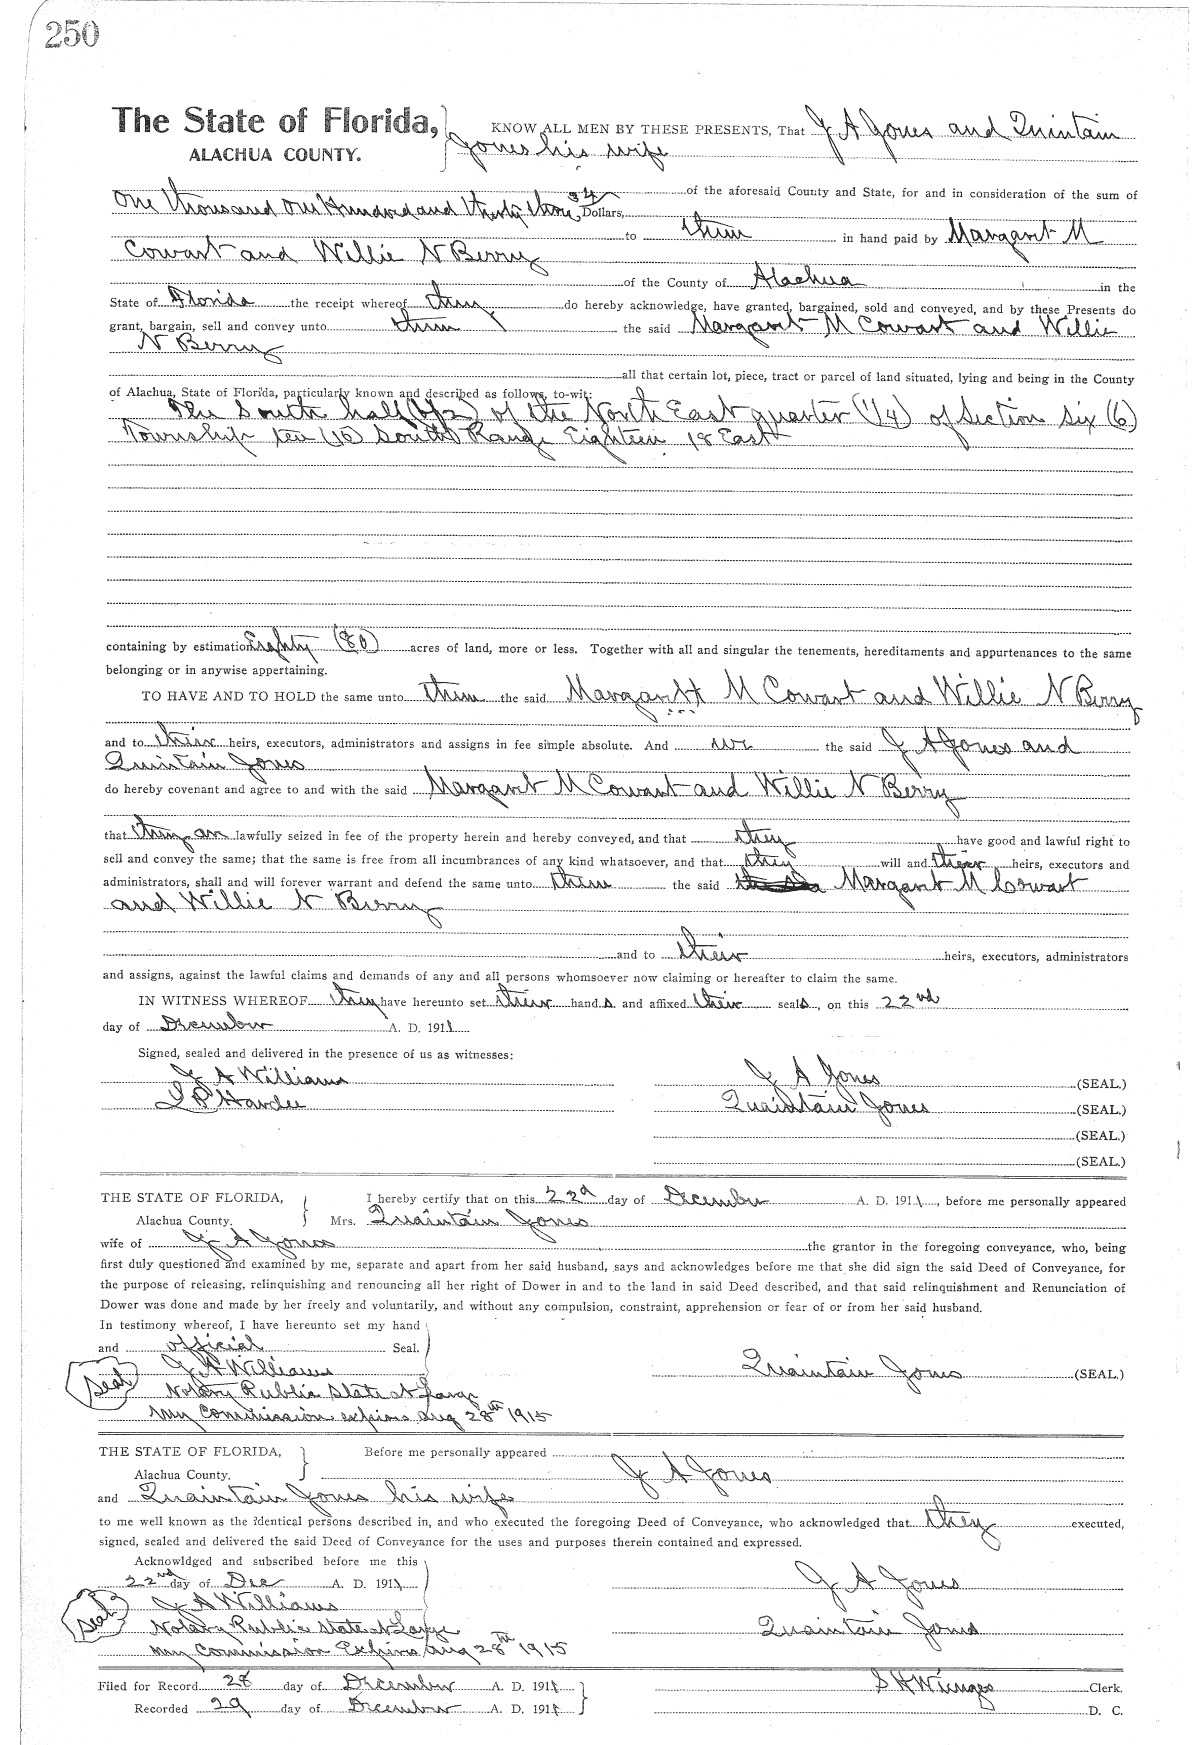 250
The State of Florida, KNOW ALL MEN BY THESE PRESENTS, That J A Jones and Quintain
ALACHUA COUNTY. Jones his wife
of the aforesaid County and State, for and in consideration of the sum of
One thousand one Hundred and thirty three 34 Dollars,
to them in hand paid by Margaret M
Cowart and Willie N Berry
of the County of Alachua in the
State of Florida the receipt whereof they do hereby acknowledge, have granted, bargained, sold and conveyed, and by these Presents do
grant, bargain, sell and convey unto them the said Margaret M Cowart and Willie
N Berry
all that certain lot, piece, tract or parcel of land situated, lying and being in the County
of Alachua, State of Florida, particularly known and described as follows, to-wit:
The South half (1/2) of the North East quarter (1/4) of Section six (6)
Township ten (10) South Range Eighteen 18 East
containing by estimation Eighty (80) acres of land, more or less. Together with all and singular the tenements, hereditaments and appurtenances to the same
belonging or in anywise appertaining.
TO HAVE AND TO HOLD the same unto them the said Margaret M Cowart and Willie N Berry
and to their heirs, executors, administrators and assigns in fee simple absolute. And we the said J A Jones and
Quintain Jones
do hereby covenant and agree to and with the said Margaret M Cowart and Willie N Berry
that they are lawfully seized in fee of the property herein and hereby conveyed, and that they have good and lawful right to
sell and convey the same; that the same is free from all incumbrances of any kind whatsoever, and that they will and their heirs, executors and
administrators, shall and will forever warrant and defend the same unto them the said Margaret M Cowart
and Willie N Berry
and to their heirs, executors, administrators
and assigns, against the lawful claims and demands of any and all persons whomsoever now claiming or hereafter to claim the same.
IN WITNESS WHEREOF they have hereunto set their hands and affixed their seals, on this 22nd
day of December A. D. 1911
Signed, sealed and delivered in the presence of us as witnesses:
J A Williams J A Jones (SEAL.)
I P Hardee Quaintain Jones (SEAL.)
(SEAL.)
(SEAL.)
THE STATE OF FLORIDA, I hereby certify that on this 22d day of December A. D. 1911, before me personally appeared
Alachua County. Mrs. Quaintain Jones
wife of J A Jones the grantor in the foregoing conveyance, who, being
first duly questioned and examined by me, separate and apart from her said husband, says and acknowledges before me that she did sign the said Deed of Conveyance, for
the purpose of releasing, relinquishing and renouncing all her right of Dower in and to the land in said Deed described, and that said relinquishment and Renunciation of
Dower was done and made by her freely and voluntarily, and without any compulsion, constraint, apprehension or fear of or from her said husband.
In testimony whereof, I have hereunto set my hand
and official Seal.
J A Williams Quaintain Jones (SEAL.)
Seal Notary Public State at Large
My Commission expires Aug 28th 1915
THE STATE OF FLORIDA, Before me personally appeared
Alachua County. J A Jones
and Quaintain Jones his wife
to me well known as the identical persons described in, and who executed the foregoing Deed of Conveyance, who acknowledged that they executed,
signed, sealed and delivered the said Deed of Conveyance for the uses and purposes therein contained and expressed.
Acknowldged and subscribed before me this
22nd day of Dec A. D. 1911 J A Jones
J A Williams
Seal Notary Public State at Large Quaintain Jones
My Commission Expires Aug 28th 1915
Filed for Record 28 day of December A. D. 1911 S H Wienges Clerk.
Recorded 29 day of December A. D. 1911 D. C.